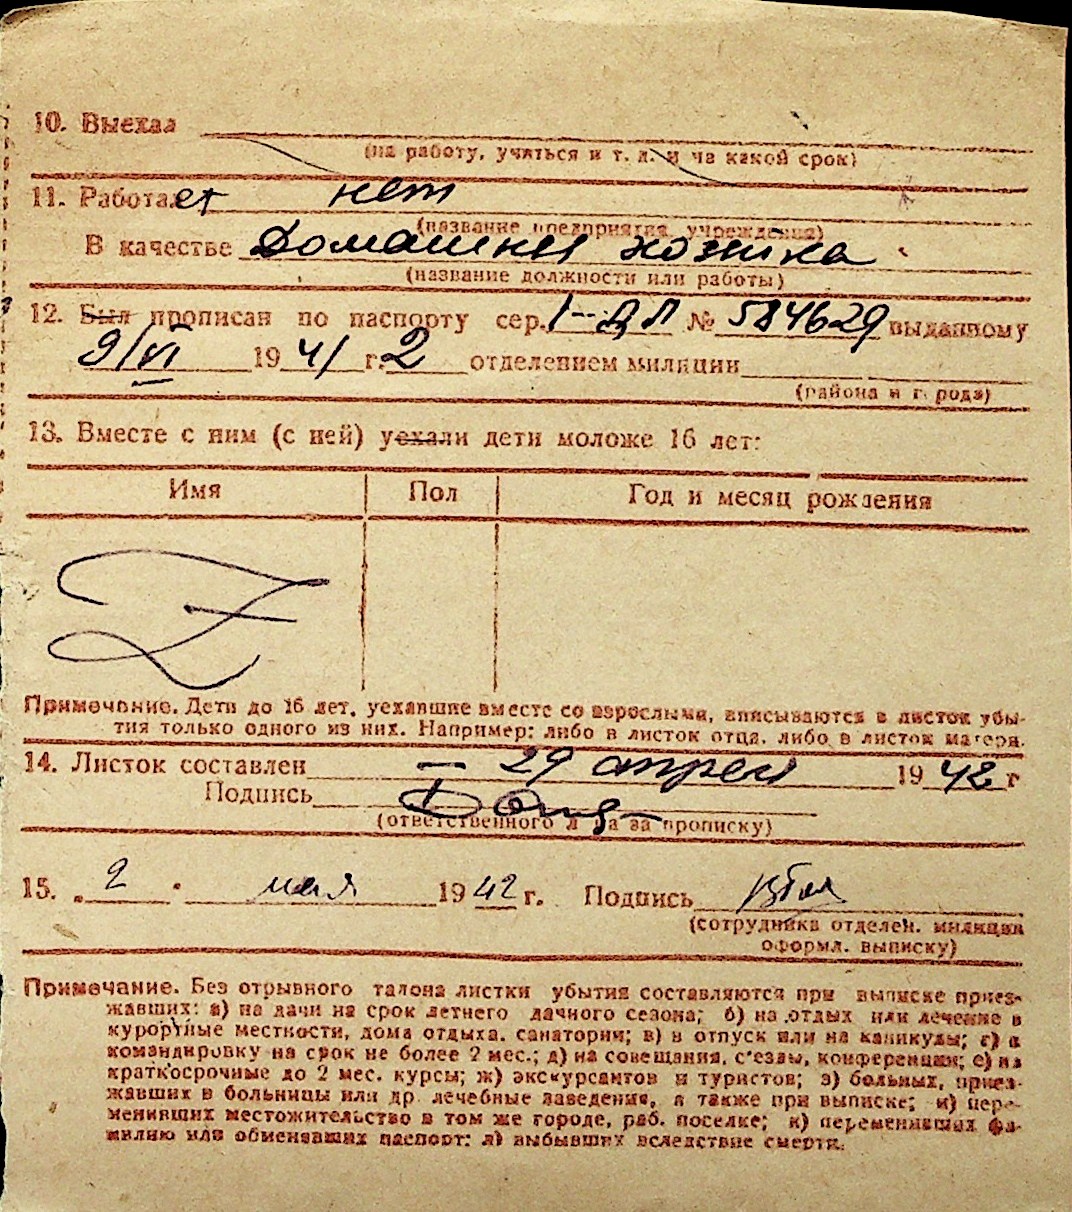 10. Выехал
(на работу, учиться и т. д. и на какой срок)
11. Работает нет
(название предприятия, учреждения)
В качестве Домашняя хозяйка
(название должности или работы)
12. Был прописан по паспорту сер. I-ДЛ № 584629 выданному
9/VI 1941 г. 2 отделением милиции
(района и города)
13. Вместе с ним (с ней) уехали дети моложе 16 лет:
Имя Пол Год и месяц рождения
Z
Примечание. Дети до 16 лет, уехавшие вместе со взрослыми, вписываются в листок убы-
тия только одного из них. Например: либо в листок отца, либо в листок матери.
14. Листок составлен — 29 апреля 1942 г
Подпись
(ответственного лица за прописку)
15. „ 2 " мая 1942 г. Подпись
(сотрудника отделен. милиции
оформл. выписку)
Примечание. Без отрывного талона листки убытия составляются при выписке приез-
жавших: а) на дачи на срок летнего дачного сезона; б) на отдых или лечение в
курортные местности, дома отдыха, санатории; в) в отпуск или на каникулы; г) в
командировку на срок не более 2 мес.; д) на совещания, с'езды, конференции; е) на
краткосрочные до 2 мес. курсы; ж) экскурсантов и туристов; з) больных, приез-
жавших в больницы или др. лечебные заведения, а также при выписке; и) пере-
менивших местожительство в том же городе, раб. поселке; к) переменивших фа-
милию или обменявших паспорт; л) выбывших вследствие смерти.